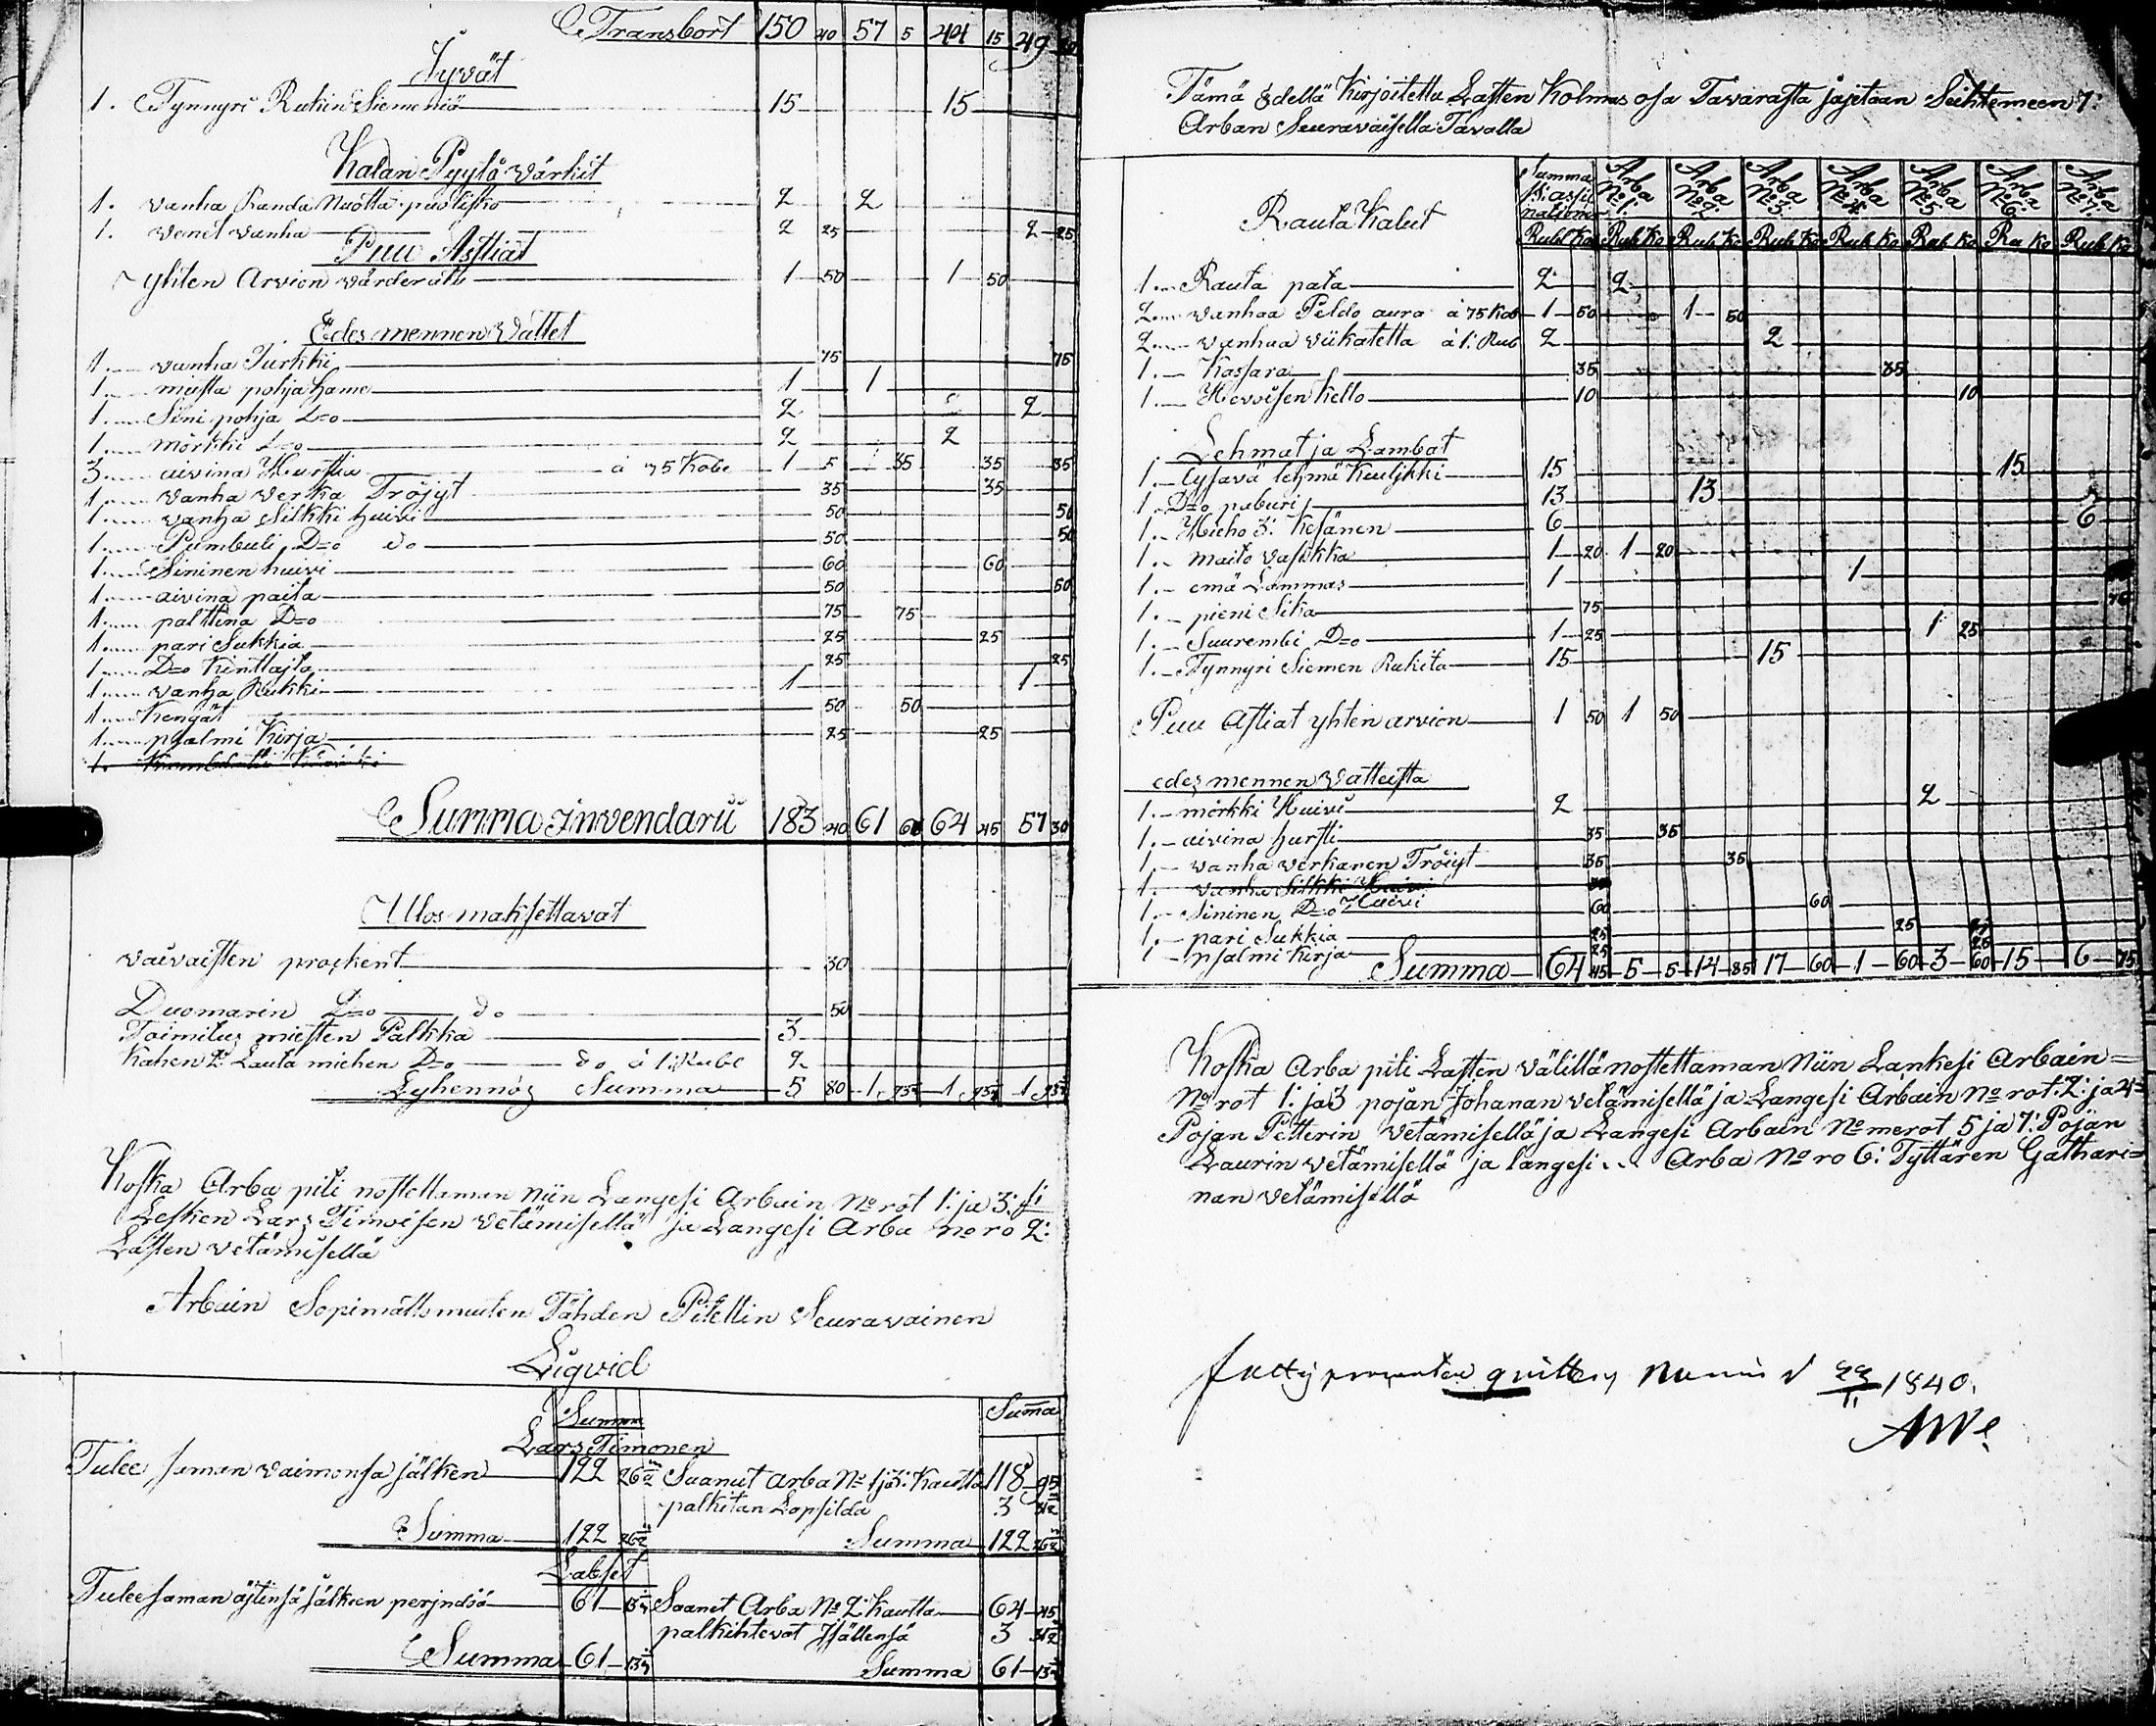 Transport 150 40 57 5 44 15 49 20
Jyvät
1. Tynnyri Rukin Siemeniä 15 15
Kalan Pyytö värkit
1. vanha Randa Nuotta puolisko 2 2
1. venet vanha 2 25 2 25
Puu Astiat
yhten Arvion värderätt 1 50 1 50
Edes mennen Vattet
1. vanha Turkki 75 75
1. musta pohja hame 1 1
1. Sini pohja D=o 2 2
1. mörkki D=o 2 2
3. aivina Hurstia à 35 Kobe 1 5 35 35 35
1. vanha verka Tröjyt 35 35
1. vanha Silkki huivi 50 50
1. Pumbuli D=o do 50 50
1. Sininen huivi 60 60
1. aivina paita 50 50
1. palttina D=o 75 75
1. pari Sukkia 25 25
1. D=o Kinttaita 25 25
1. vanha Rukki 1 1
1. Kengät 50 50
1. psalmi Kirja 25 25
Summa invendarii 183 40 61 60 64 45 57 30
Ulos maksettavat
vaivaisten prosKent 30
Duomarin D=o do 50
Toimitus miesten Palkka 3
Kahen 2: Lauta miehen D=o do à 1: Rube 2
Lyhennös Summa 5 80 1 93 1 93 1 93
Koska Arba piti nostettaman niin Langesi Arbain No rot 1: ja 3:
Lesken Lars Timoisen vetämisellä ja Langesi Arba no ro 2:
Lasten vetämisellä
Arbain Sopimattomuuten Tähden Pitettin Seuravainen
Liqvid
Summa Suma
Lars Timonen
Tulee saman vaimonsa jälken 122 26 Saanut arba No 1 ja 3: Kautta 118 95
palkitan Lapsilda 3 31
Summa 122 26 Summa 122 26
Labset
Tulee saman äitinsä jälkeen perindöä 61 13 Saanet Arba No 2: Kautta 64 45
palkihtevat Isällensä 3 31
Summa 61 13 Summa 61 13
Tämä Edellä Kirjoitettu Lasten Kolmas osa Tavarasta jajetaan Seihtemeen 7:
Arban Seuravaisella Tavalla
Rauta Kalut Summa Arba No 1: Arba No 2: Arba No 3: Arba No 4: Arba No 5 Arba No 6: Arba No 7:
Rub Ko Rub Ko Rub Ko Rub Ko Rub Ko Rub Ko Ru Ko Rub Ko
1. Rauta pata 2 2
2. vanhaa Peldo aura à 75 Kob 1 50 1 50
2. vanhaa viikatetta à 1: Rub 2 2
1. Kassara 35 35
1. Hevoisen Kello 10 10
Lehmat ja Lambat
1. Tysavä lehmä Kuulikki 15 15
1. D=o puburi 13 13
1. Hieho 3: Kesänen 6 6
1. maito vasikka 1 20 1 20
1. emä Lammas 1 1
1. pieni Sika 75 75
1. Suurembi D=o 1 25 1 25
1. Tynnyri Siemen Rukita 15 15
Puu Astiat yhten arvion 1 50 1 50
edes mennen vatteista
1. mörkki Huivi 2 2
1. aivina hursti 35 35
1. vanha verkanen Tröiyt 35 35
1. vanha Silkki Huivi
1. Sininen D=o Huivi 60 60
1. pari Sukkia 25 25
1 psalmi Kirja 25 25
Summa 64 45 5 5 14 85 17 60 1 60 3 60 15 6 75
Koska Arba piti Lasten välillä nostettaman Niin Lankesi Arbain=
No rot 1: ja 3 pojan Johanan vetämisellä ja Langesi Arbain No rot: 2: ja 4=
Pojan Petterin vetämisellä ja Langesi Arbain No merot 5 ja 7: Pojan
Laurin vetämisellä ja langesi Arba No ro 6: Tyttären Cathari=
nan vetämisellä
1840.